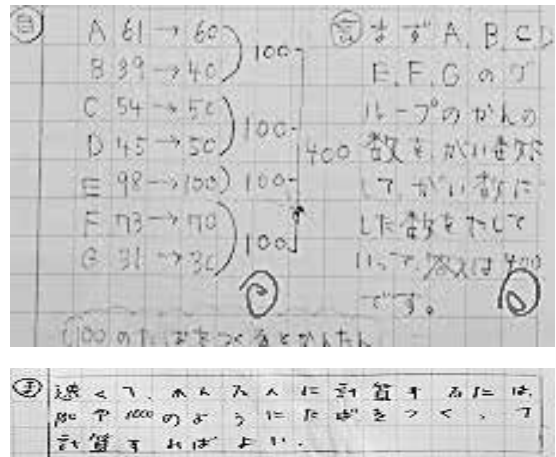 自
A 61→60
B 39→40
100
C 54→50
D 45→50
100
E 98→100
100
F 73→70
G 31→30
100
400
100のたばをつくるとかんたん
言 まず A、B、C、D
E、F、Gのグ
ループのかんの
数を、がい数に
して、がい数に
した数をたして
いって、答えは400
です。
ま 速くて、かんたんに計算するには、
100や1000のようにたばをつくって
計算すればよい。